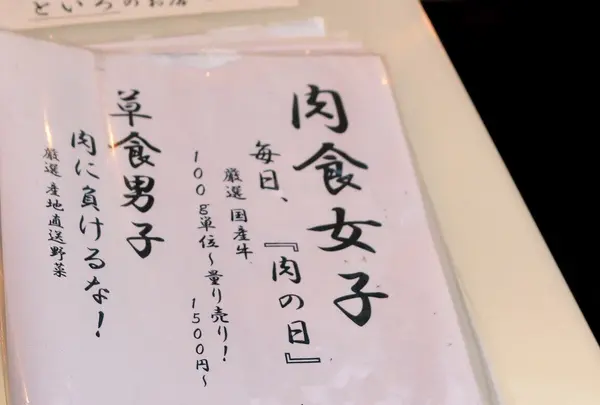 といろのお店
肉食女子
毎日、『肉の日』
厳選 国産牛
100g単位~量り売り!
1500円~
草食男子
肉に負けるな!
厳選 産地直送野菜